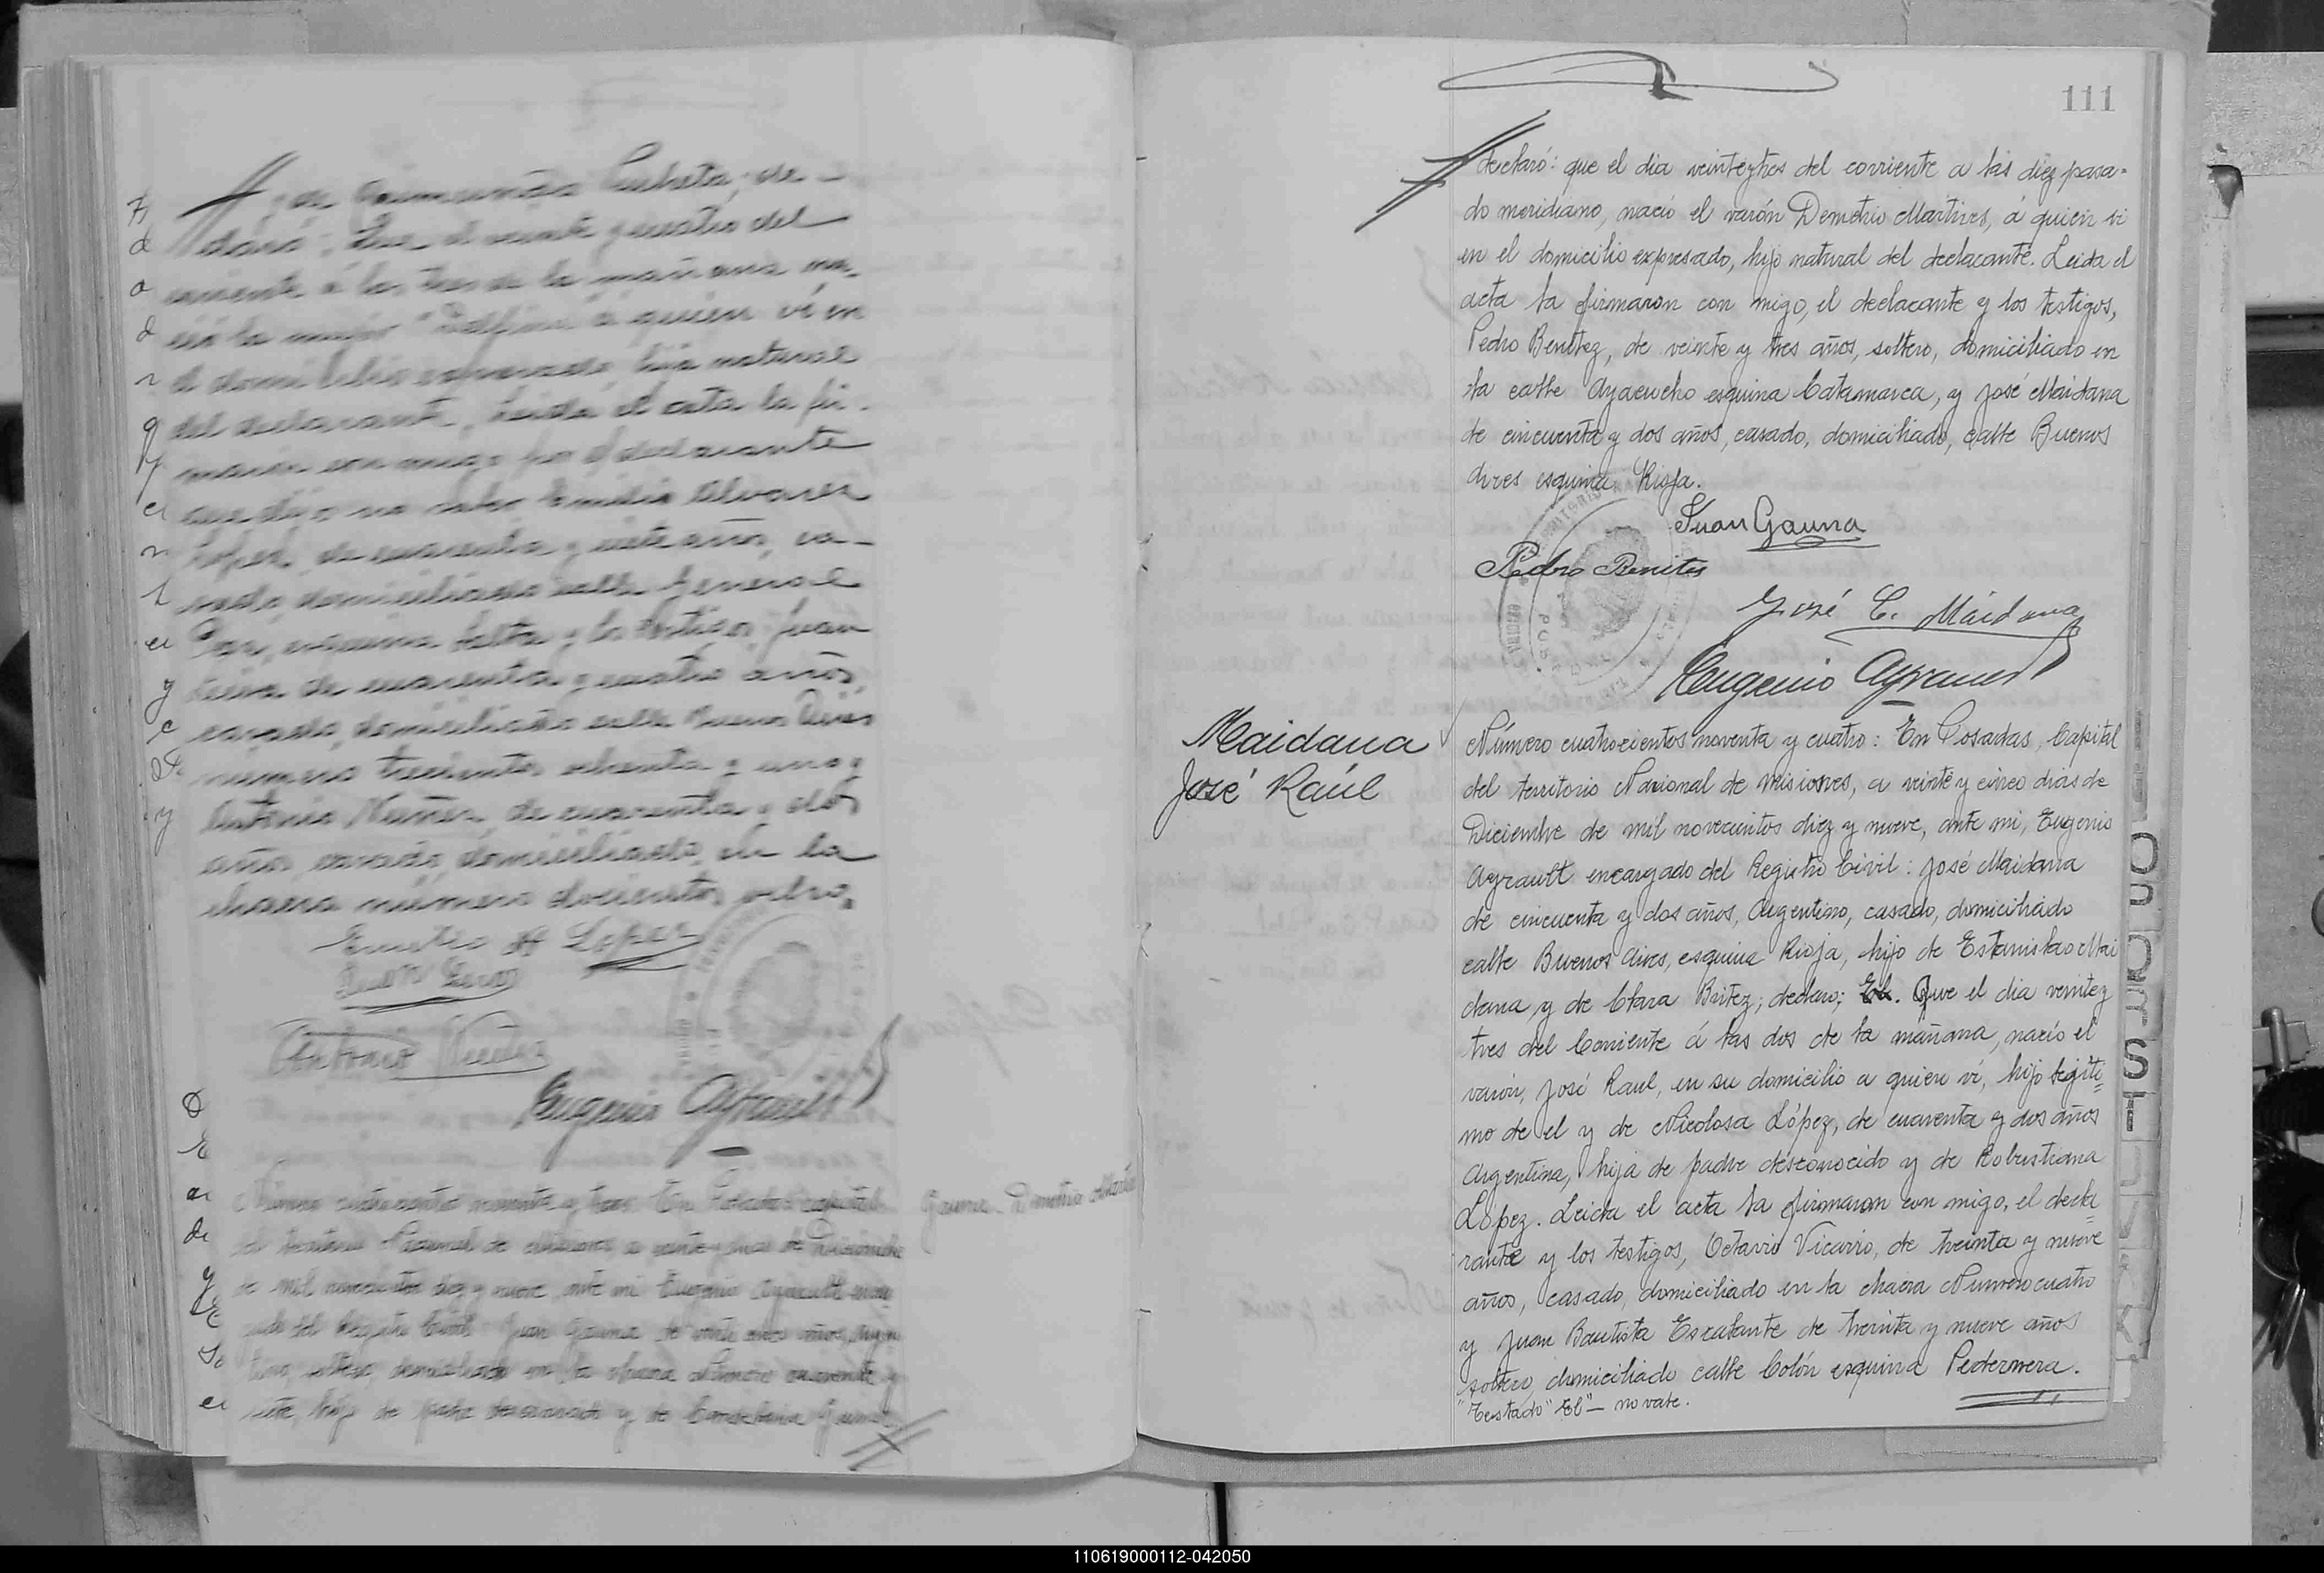 declaró: que el dia veinteytres del corriente a las diez pasa-
do meridiano, nació el varón Demetrio Martires, á quien vi
en el domicilio expresado, hijo natural del declarante. Leida el
acta la firmaron con migo, el declarante y los testigos,
Pedro Benitez, de veinte y tres años, soltero, domiciliado en
la calle Ayacucho esquina Catamarca, y José Maidana
de cincuenta y dos años, casado, domiciliado, calle Buenos
Aires esquina Rioja.
Juan Gauna
Pedro Benites
José C. Maidana
Eugenio Ayrault
Maidana
José Raúl
Número cuatrocientos noventa y cuatro: En Posadas, Capital
del territorio Nacional de Misiones, a veinte y cinco dias de
Diciembre de mil novecientos diez y nueve, ante mi, Eugenio
Ayrault encargado del Registro Civil: José Maidana
de cincuenta y dos años, Argentino, casado, domiciliado
calle Buenos Aires, esquina Rioja, hijo de Estanislao Mai
dana y de Clara Britez; declaro; El. Que el dia veintey
tres del Corriente á las dos de la mañana, nació el
varón, José Raul, en su domicilio a quien vi, hijo legiti=
mo de el y de Nicolosa López, de cuarenta y dos años
Argentina, hija de padre desconocido y de Robustiana
López. Leida el acta la firmaron con migo, el decla=
rante y los testigos, Octavio Vicario, de treinta y nueve
años, casado, domiciliado en la chacra Numero cuatro
y Juan Bautista Escalante de treinta y nueve años
soltero, domiciliado calle Colón esquina Pedernera.
"Testado" El" — no vale.
111
y de
declaró: Que el veinte y cuatro del
corriente á las tres de la mañana na-
ció la mujer "Delfina" á quien ví en
el domicilio expresado, hija natural
del declarante, Leida el acta la fir-
maron con migo por el declarante
que dijo no saber Emilio Alvarez
López, de cuarenta y siete años, ca-
sado, domiciliado calle General
Paz, esquina Salta y los testigos, Juan
de cuarenta y cuatro años,
casado, domiciliado calle Buenos Aires
numero trecientos ochenta y uno y
Antonio Nuñez, de cuarenta y dos
años, casado, domiciliado, en la
chacra número docientos ocho.
Antonio Nuñez
Eugenio Ayrault
Número cuatrocientos noventa y tres: En Posadas capital
del territorio Nacional de Misiones a veinte y cinco de Diciembre
de mil novecientos diez y nueve, ante mi Eugenio Ayrault encar
gado del Registro Civil: Juan Gauna de veinte años, Argen
tino, soltero, domiciliado en la chacra Número cincuenta y
siete, hijo de padre desconocido y de Gauna
110619000112-042050